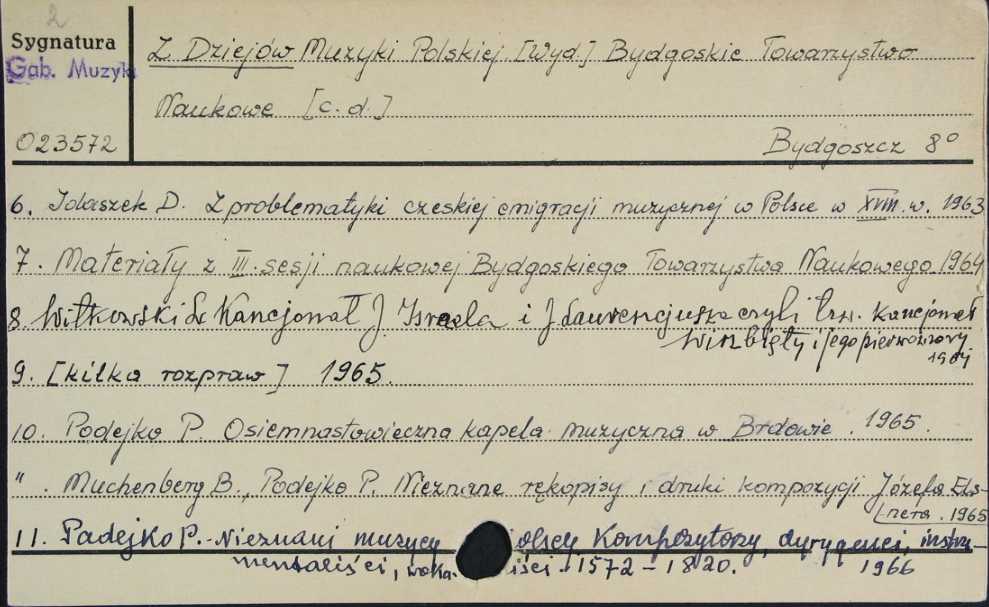 2
Sygnatura
Gab. Muzyki
023572
Z Dziejów Muzyki Polskiej [Wyd.] Bydgoskie Towarzystwo
Naukowe [c.d.]
Bydgoszcz 8°
6. Idaszek D. Z problematyki czeskiej emigracji muzycznej w Polsce w XVIII w. 1963
7. Materiały z III sesji naukowej Bydgoskiego Towarzystwa Naukowego 1964
8 Witkowski L. Kancjonał J. Izraela i J. Laurencjusza czyli tzw. kancjonał
Wirzbięty i jego pierwowzory
9. [kilka rozpraw] 1965.
10. Podejko P. Osiemnastowieczna kapela muzyczna w Brdowie. 1965.
" . Muchenberg B., Podejko P. Nieznane rękopisy i druki kompozycji Józefa Els-
nera. 1965
11. Padejko P. - Nieznani muzycy olscy Kompozytorzy, dyrygenci, instru-
mentaliści, woka. iści. 1572 - 1820. 1966